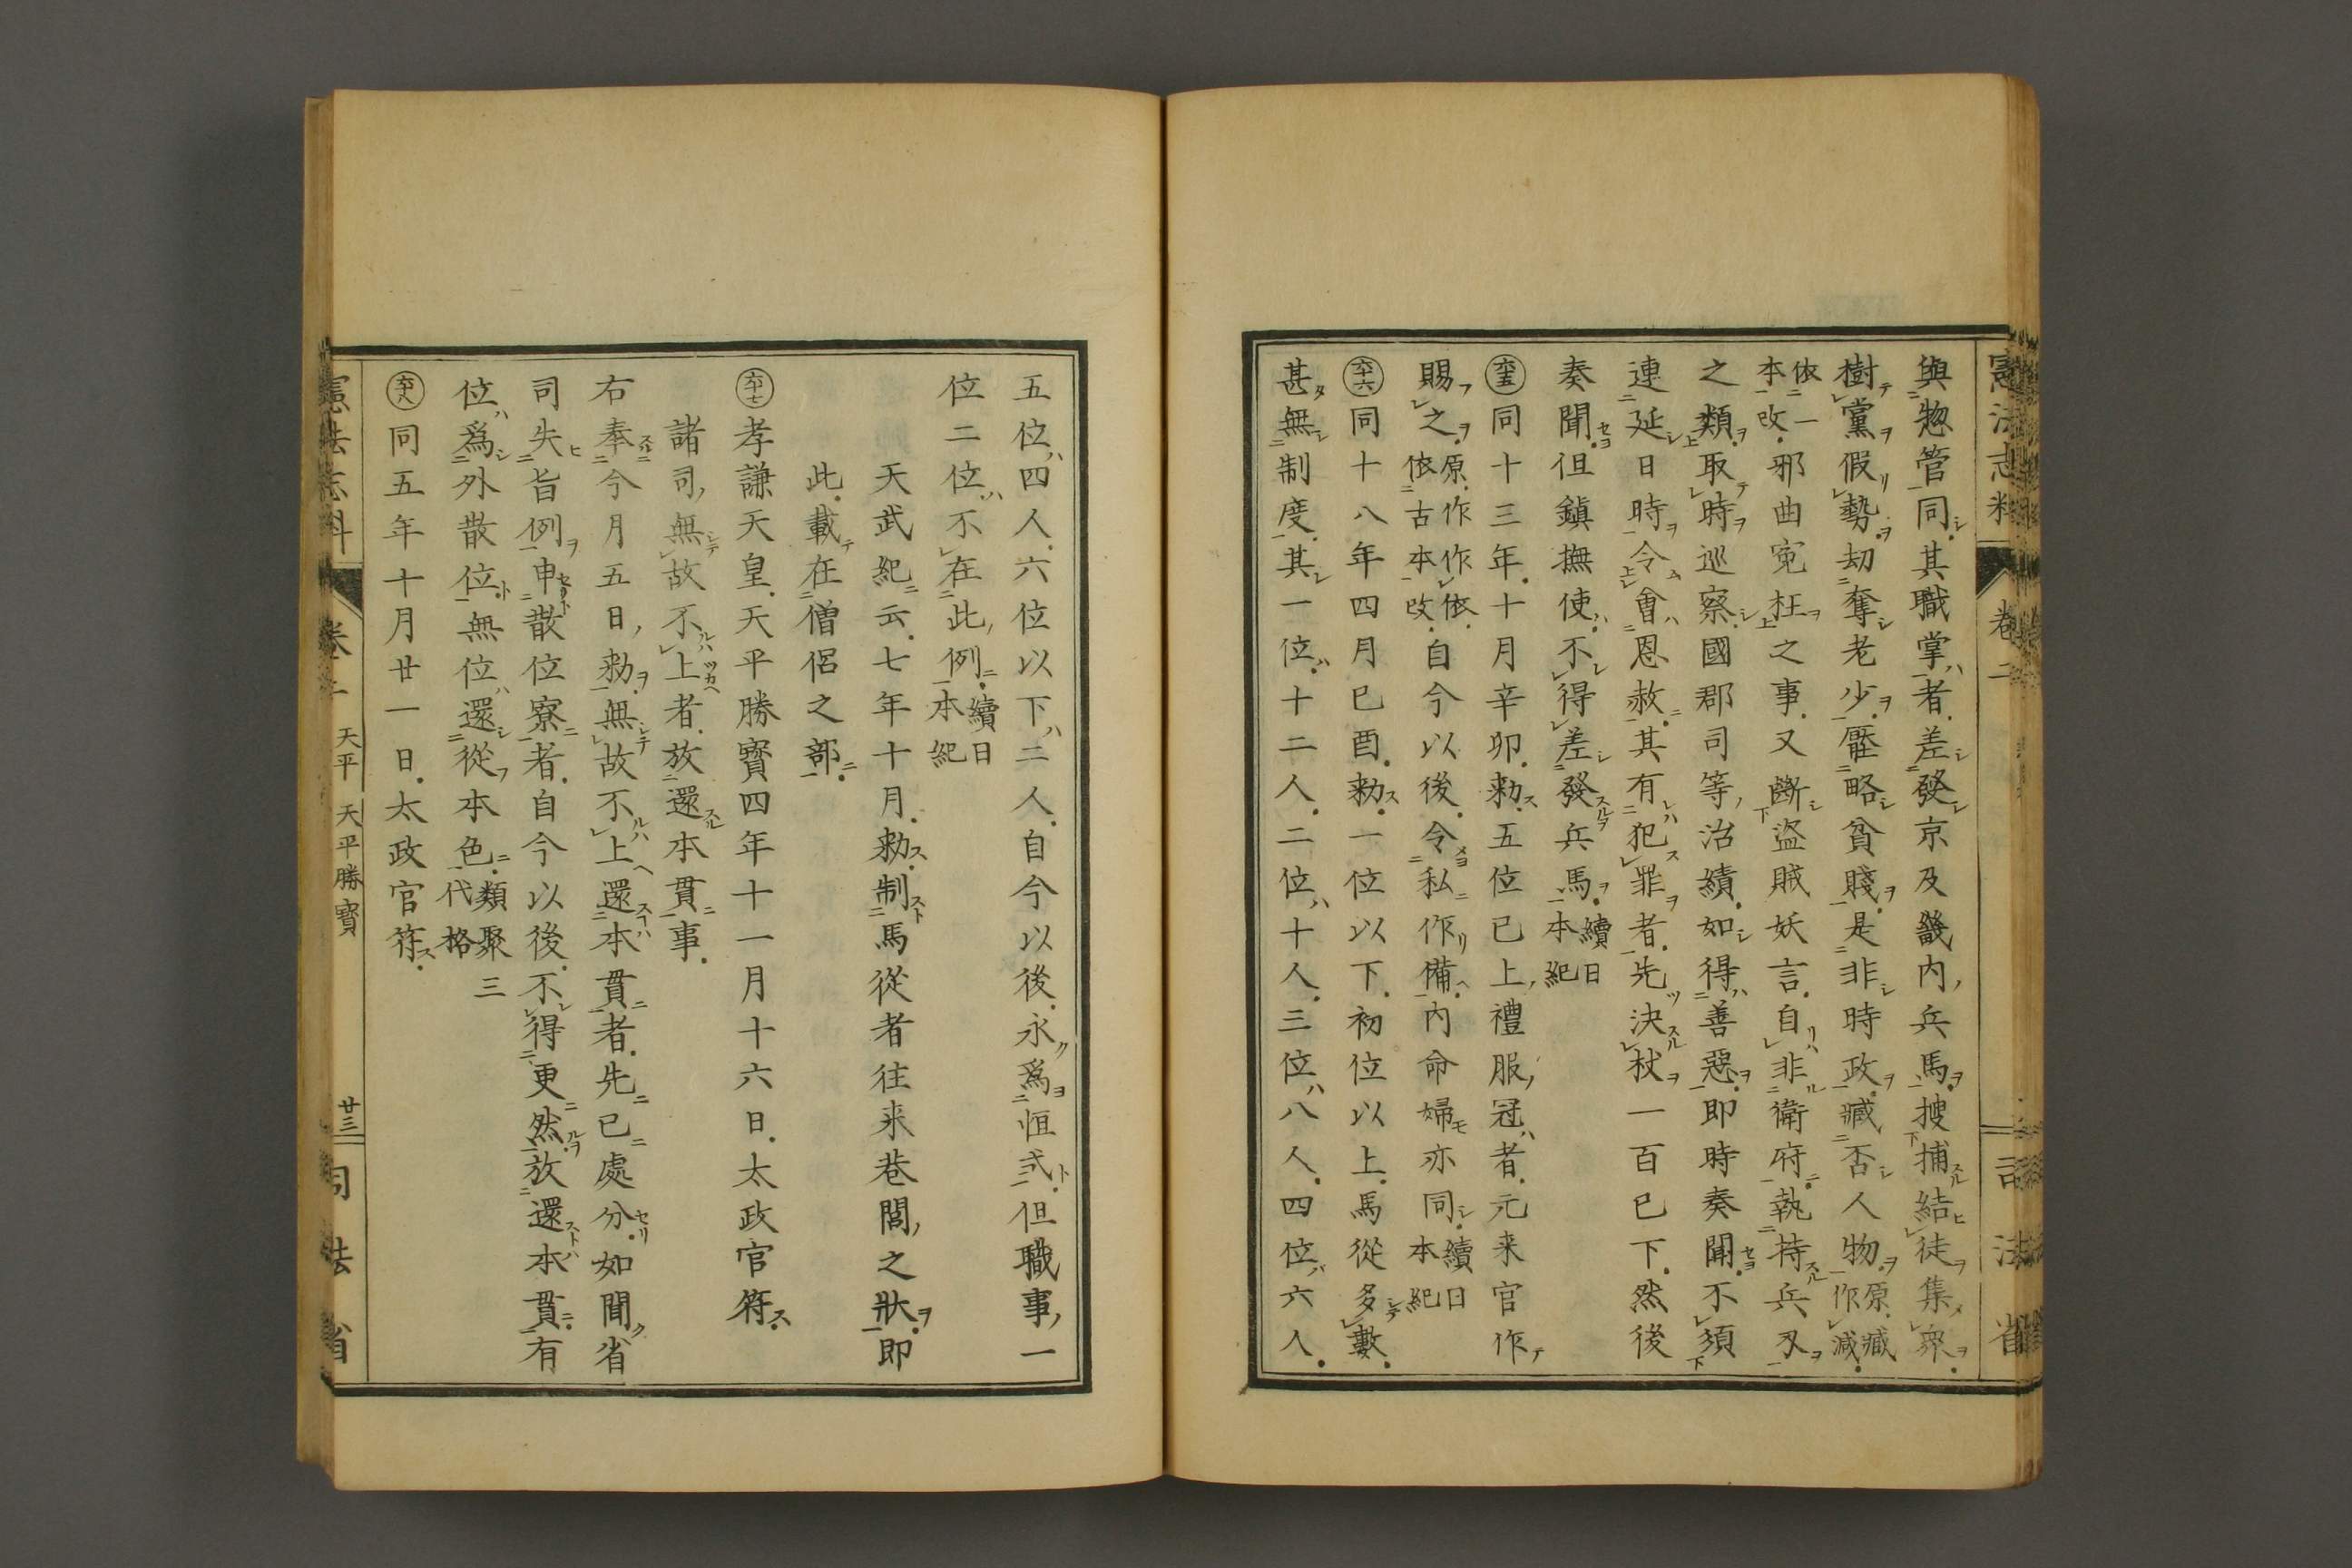 與惣管同其職掌者差發京及畿内兵馬搜捕結徒集衆
樹黨假勢劫奪老少壓略貧賤是非時政臧否人物原臧作減
依一本改邪曲寃枉之事又斷盜賊妖言自非衛府執持兵刃
之類取時巡察國郡司等治績如得善惡即時奏聞不須
連延日時令會恩赦其有犯罪者先決杖一百已下然後
奏聞但鎮撫使不得差發兵馬續日本紀
六十五同十三年十月辛卯勅五位已上禮服冠者元来官作
賜之原作作依依古本改自今以後令私作備内命婦亦同續日本紀
六十六同十八年四月己酉勅一位以下初位以上馬從多數
甚無制度其一位十二人二位十人三位八人四位六人
五位四人六位以下二人自今以後永爲恒式但職事一
位二位不在此例續日本紀
天武紀云七年十月勅制馬從者往来巷閭之狀即
此載在僧侶之部
六十七孝謙天皇天平勝寳四年十一月十六日太政官符
諸司無故不上者放還本貫事
右奉今月五日勅無故不上還本貫者先已處分如聞省
司失旨例申散位寮者自今以後不得更然放還本貫有
位爲外散位無位還從本色類聚三代格
六十八同五年十月廿一日太政官符
憲法志料
卷二
天平 天平勝寳
廿三
司法省